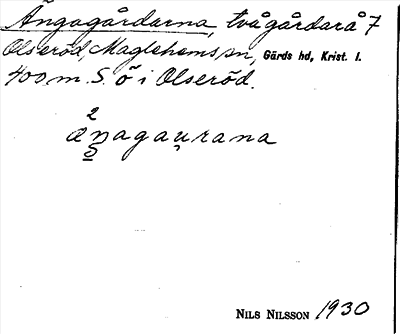 Ängagårdarna, två gårdar å 7
Olseröd, Maglehems sn, Gärds hd, Krist. l.
400 m. S. ö i Olseröd.
2
ængagaurana
NILS NILSSON 1930